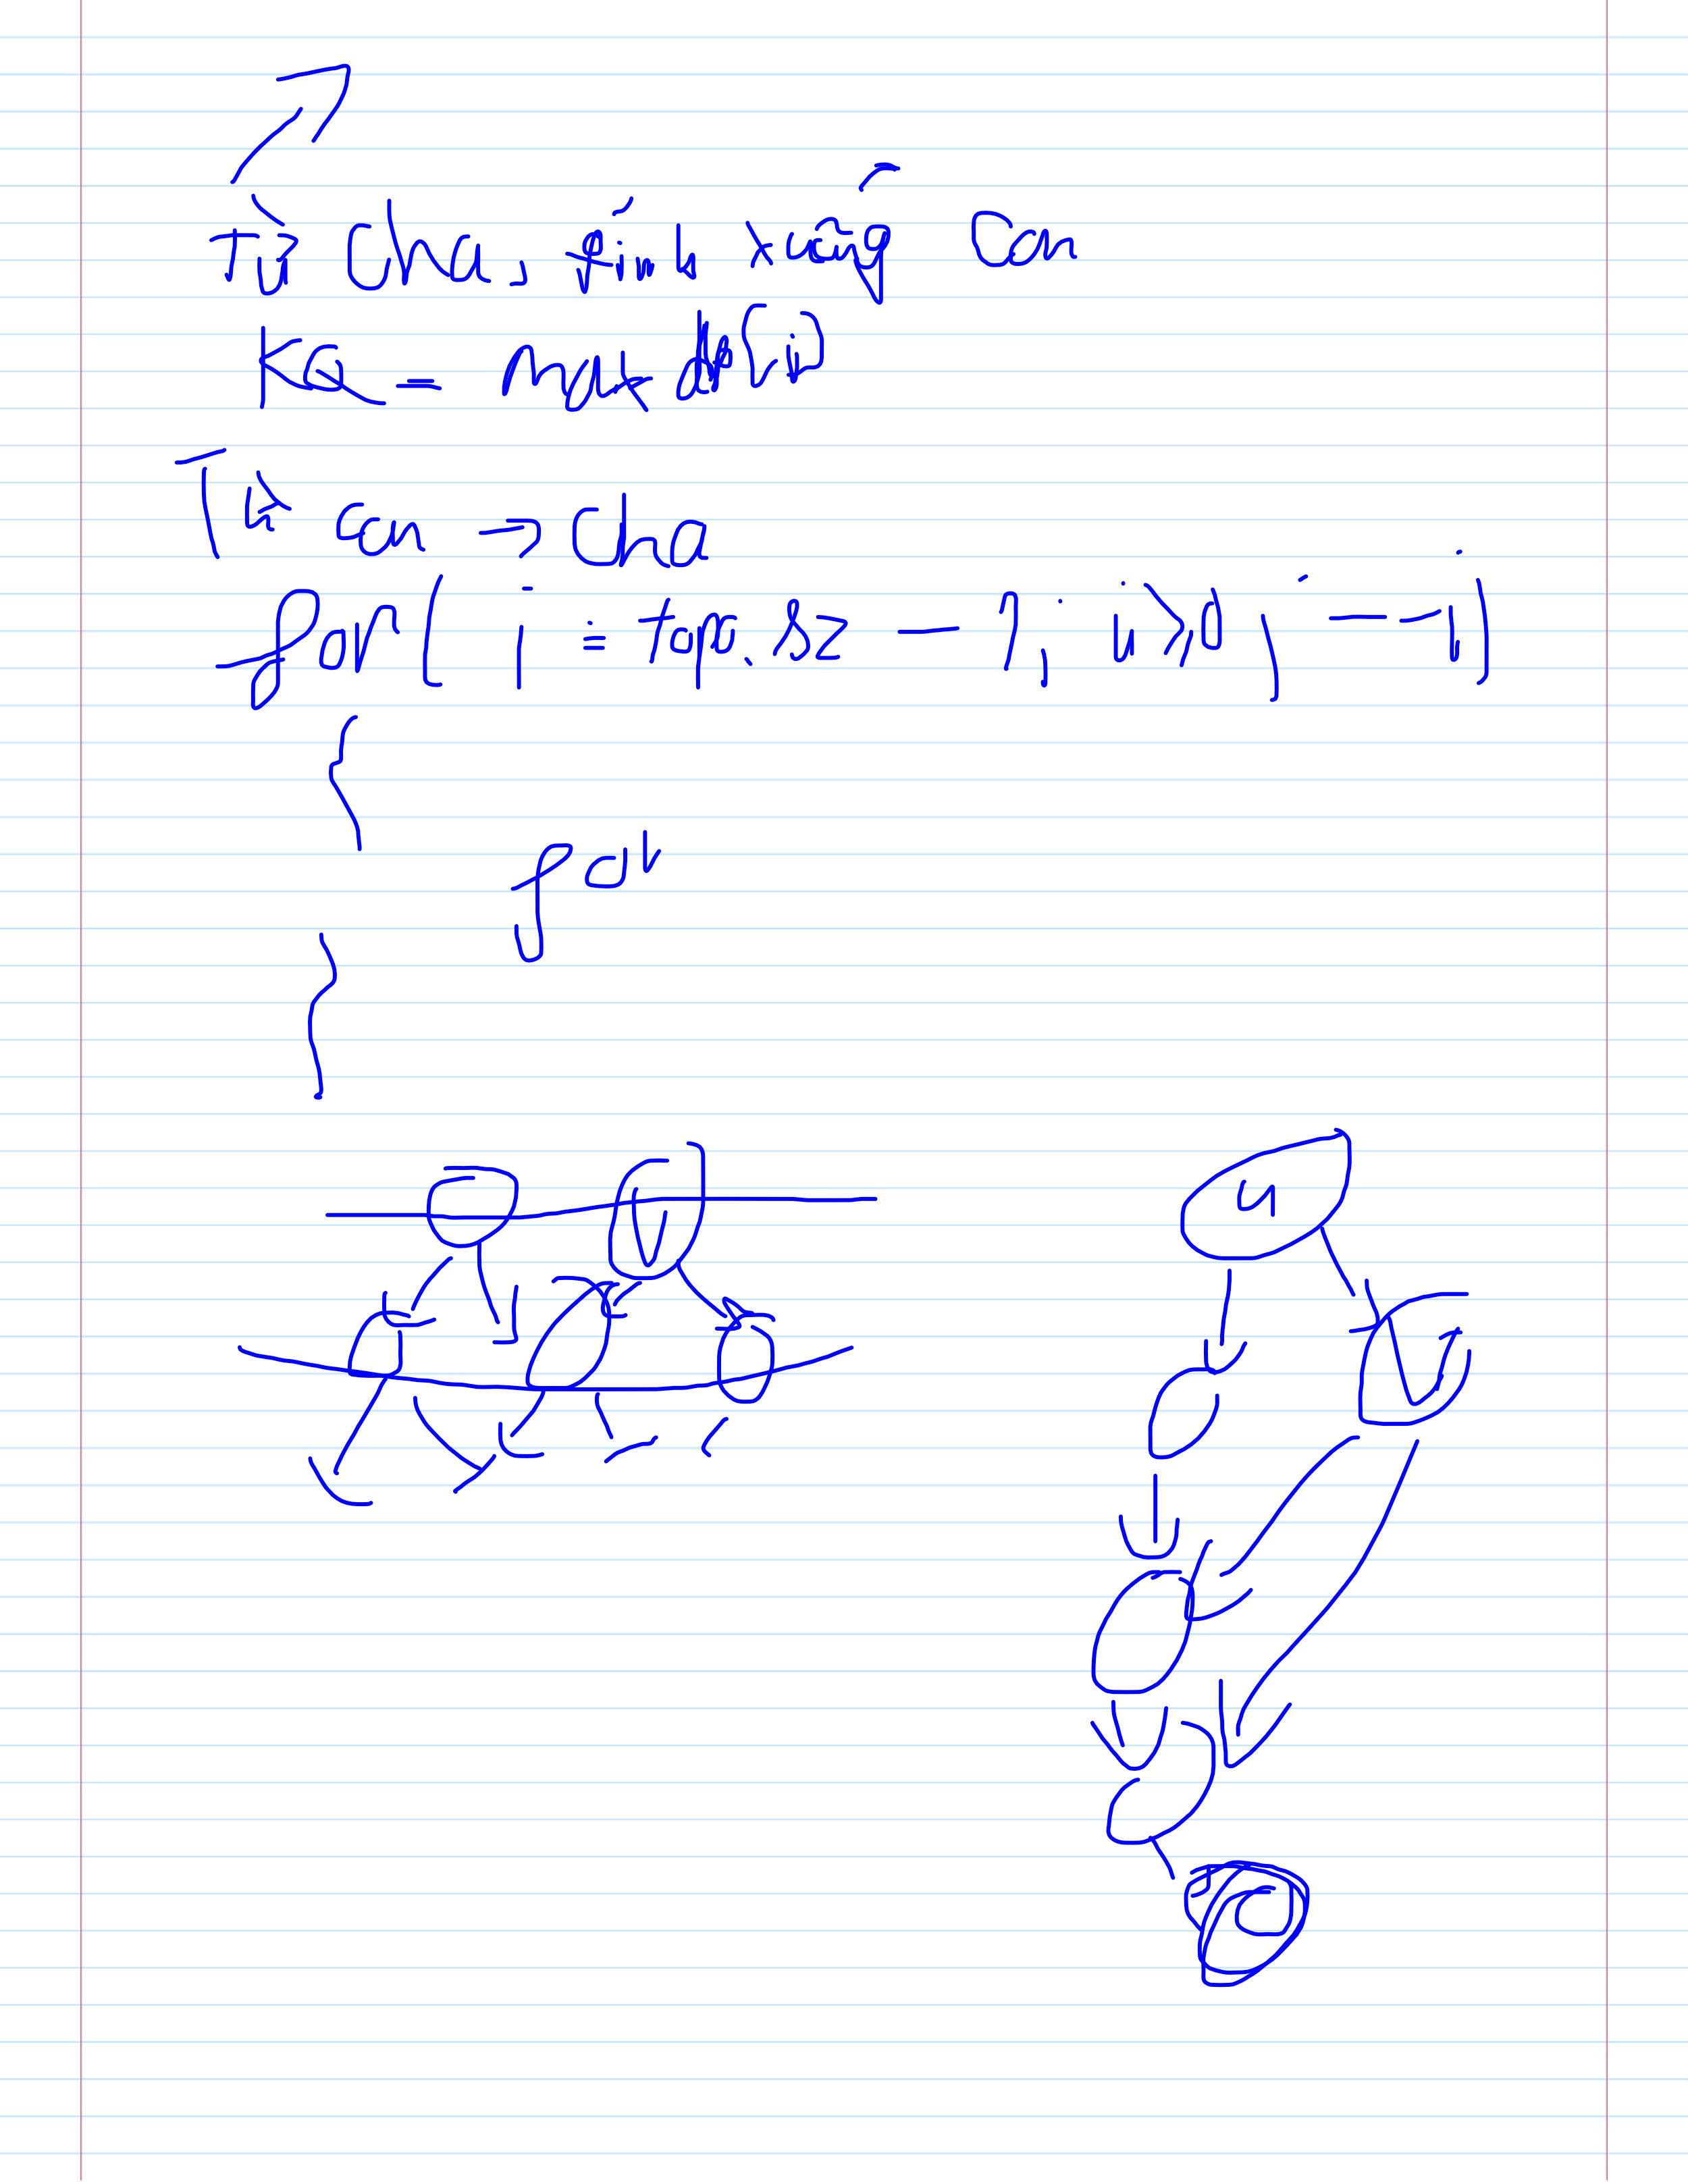 Từ cha, tính xuống con
KQ = max dp(i)
Từ con → cha
for( i = topo.sz - 1; i>0; i--)
{
}
u
v
v